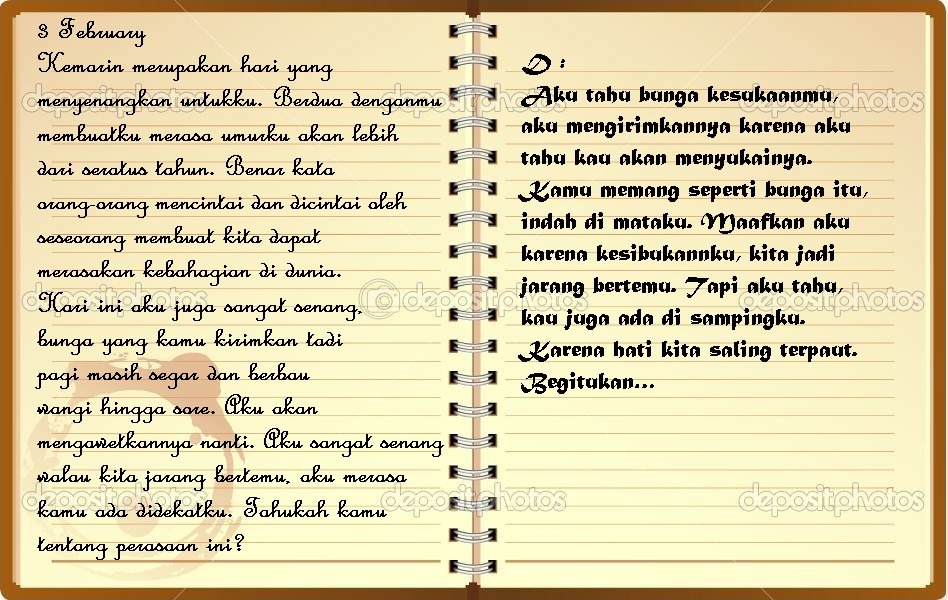 3 February
Kemarin merupakan hari yang
menyenangkan untukku. Berdua denganmu
membuatku merasa umurku akan lebih
dari seratus tahun. Benar kata
orang-orang mencintai dan dicintai oleh
seseorang membuat kita dapat
merasakan kebahagian di dunia.
Hari ini aku juga sangat senang,
bunga yang kamu kirimkan tadi
pagi masih segar dan berbau
wangi hingga sore. Aku akan
mengawetkannya nanti. Aku sangat senang
walau kita jarang bertemu, aku merasa
kamu ada didekatku. Tahukah kamu
tentang perasaan ini?
D :
Aku tahu bunga kesukaanmu,
aku mengirimkannya karena aku
tahu kau akan menyukainya.
Kamu memang seperti bunga itu,
indah di mataku. Maafkan aku
karena kesibukannku, kita jadi
jarang bertemu. Tapi aku tahu,
kau juga ada di sampingku.
Karena hati kita saling terpaut.
Begitukan...
depositphotos